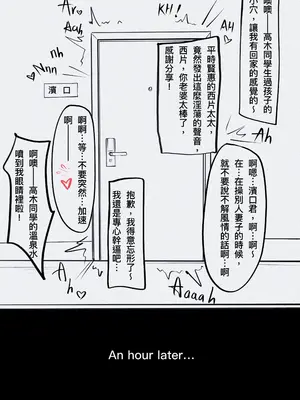 Ar
Au
KH!
AH
nn
Nnh
Ah
噢噢——高木同學生過孩子的
小穴,讓我有回家的感覺的~
平時賢惠的西片太太,
竟然發出這麼淫蕩的聲音,
西片,你老婆太棒了,
感謝分享!
濱口
啊啊…等…不要突然…加速
啊——
啊嗯…濱口君,啊…啊~
在…在操別人妻子的時候,
就不要說不解風情的話啊…啊
抱歉,我得意忘形了~
我還是專心幹逼吧…
啊噢——高木同學的溫泉水
噴到我眼睛裡啦!
Ah
Aaaah
An hour later...